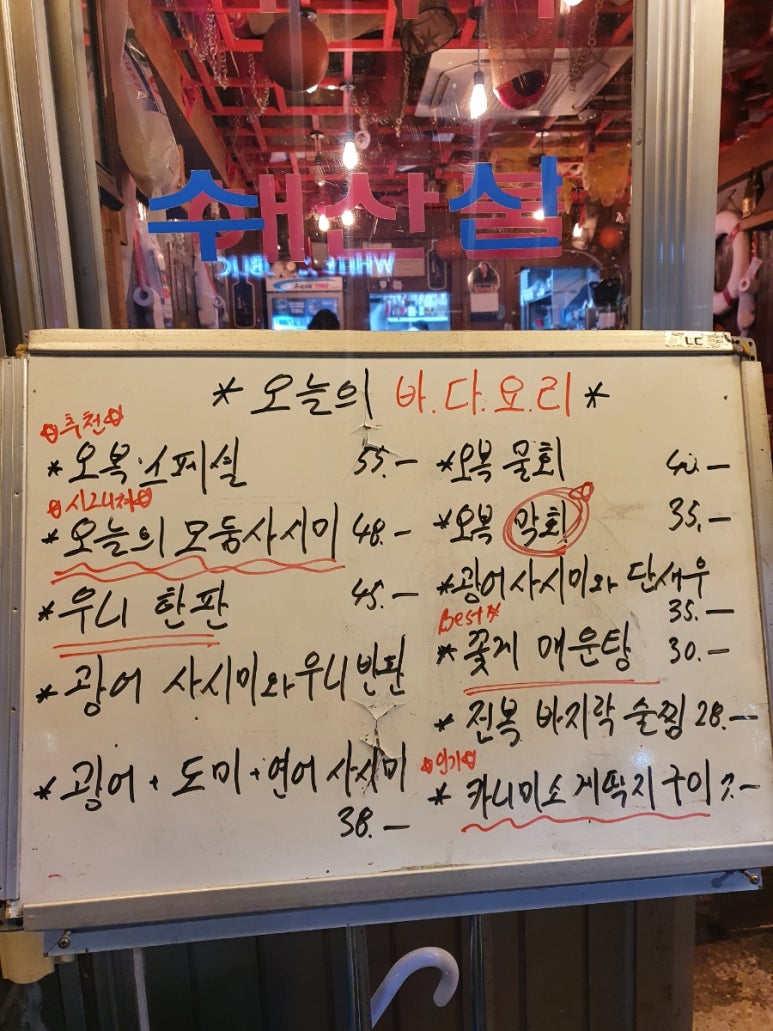 수산실
WHITE
BLIC
Aqua FINE
LC
*오늘의 바.다.요.리*
추천
*오복 스페셜 55.-
시그니쳐
*오늘의 모둠사시미 48.-
*우니 한판 45.-
*광어 사시미와 우니반판
*광어+도미+연어 사시미
38.-
*오복 물회 40.-
*오복 막회 35.-
*광어사시미와 단새우
35.-
Best
*꽃게 매운탕 30.-
*전복 바지락 술찜 28.-
인기
*카니미소 게딱지구이 7.-